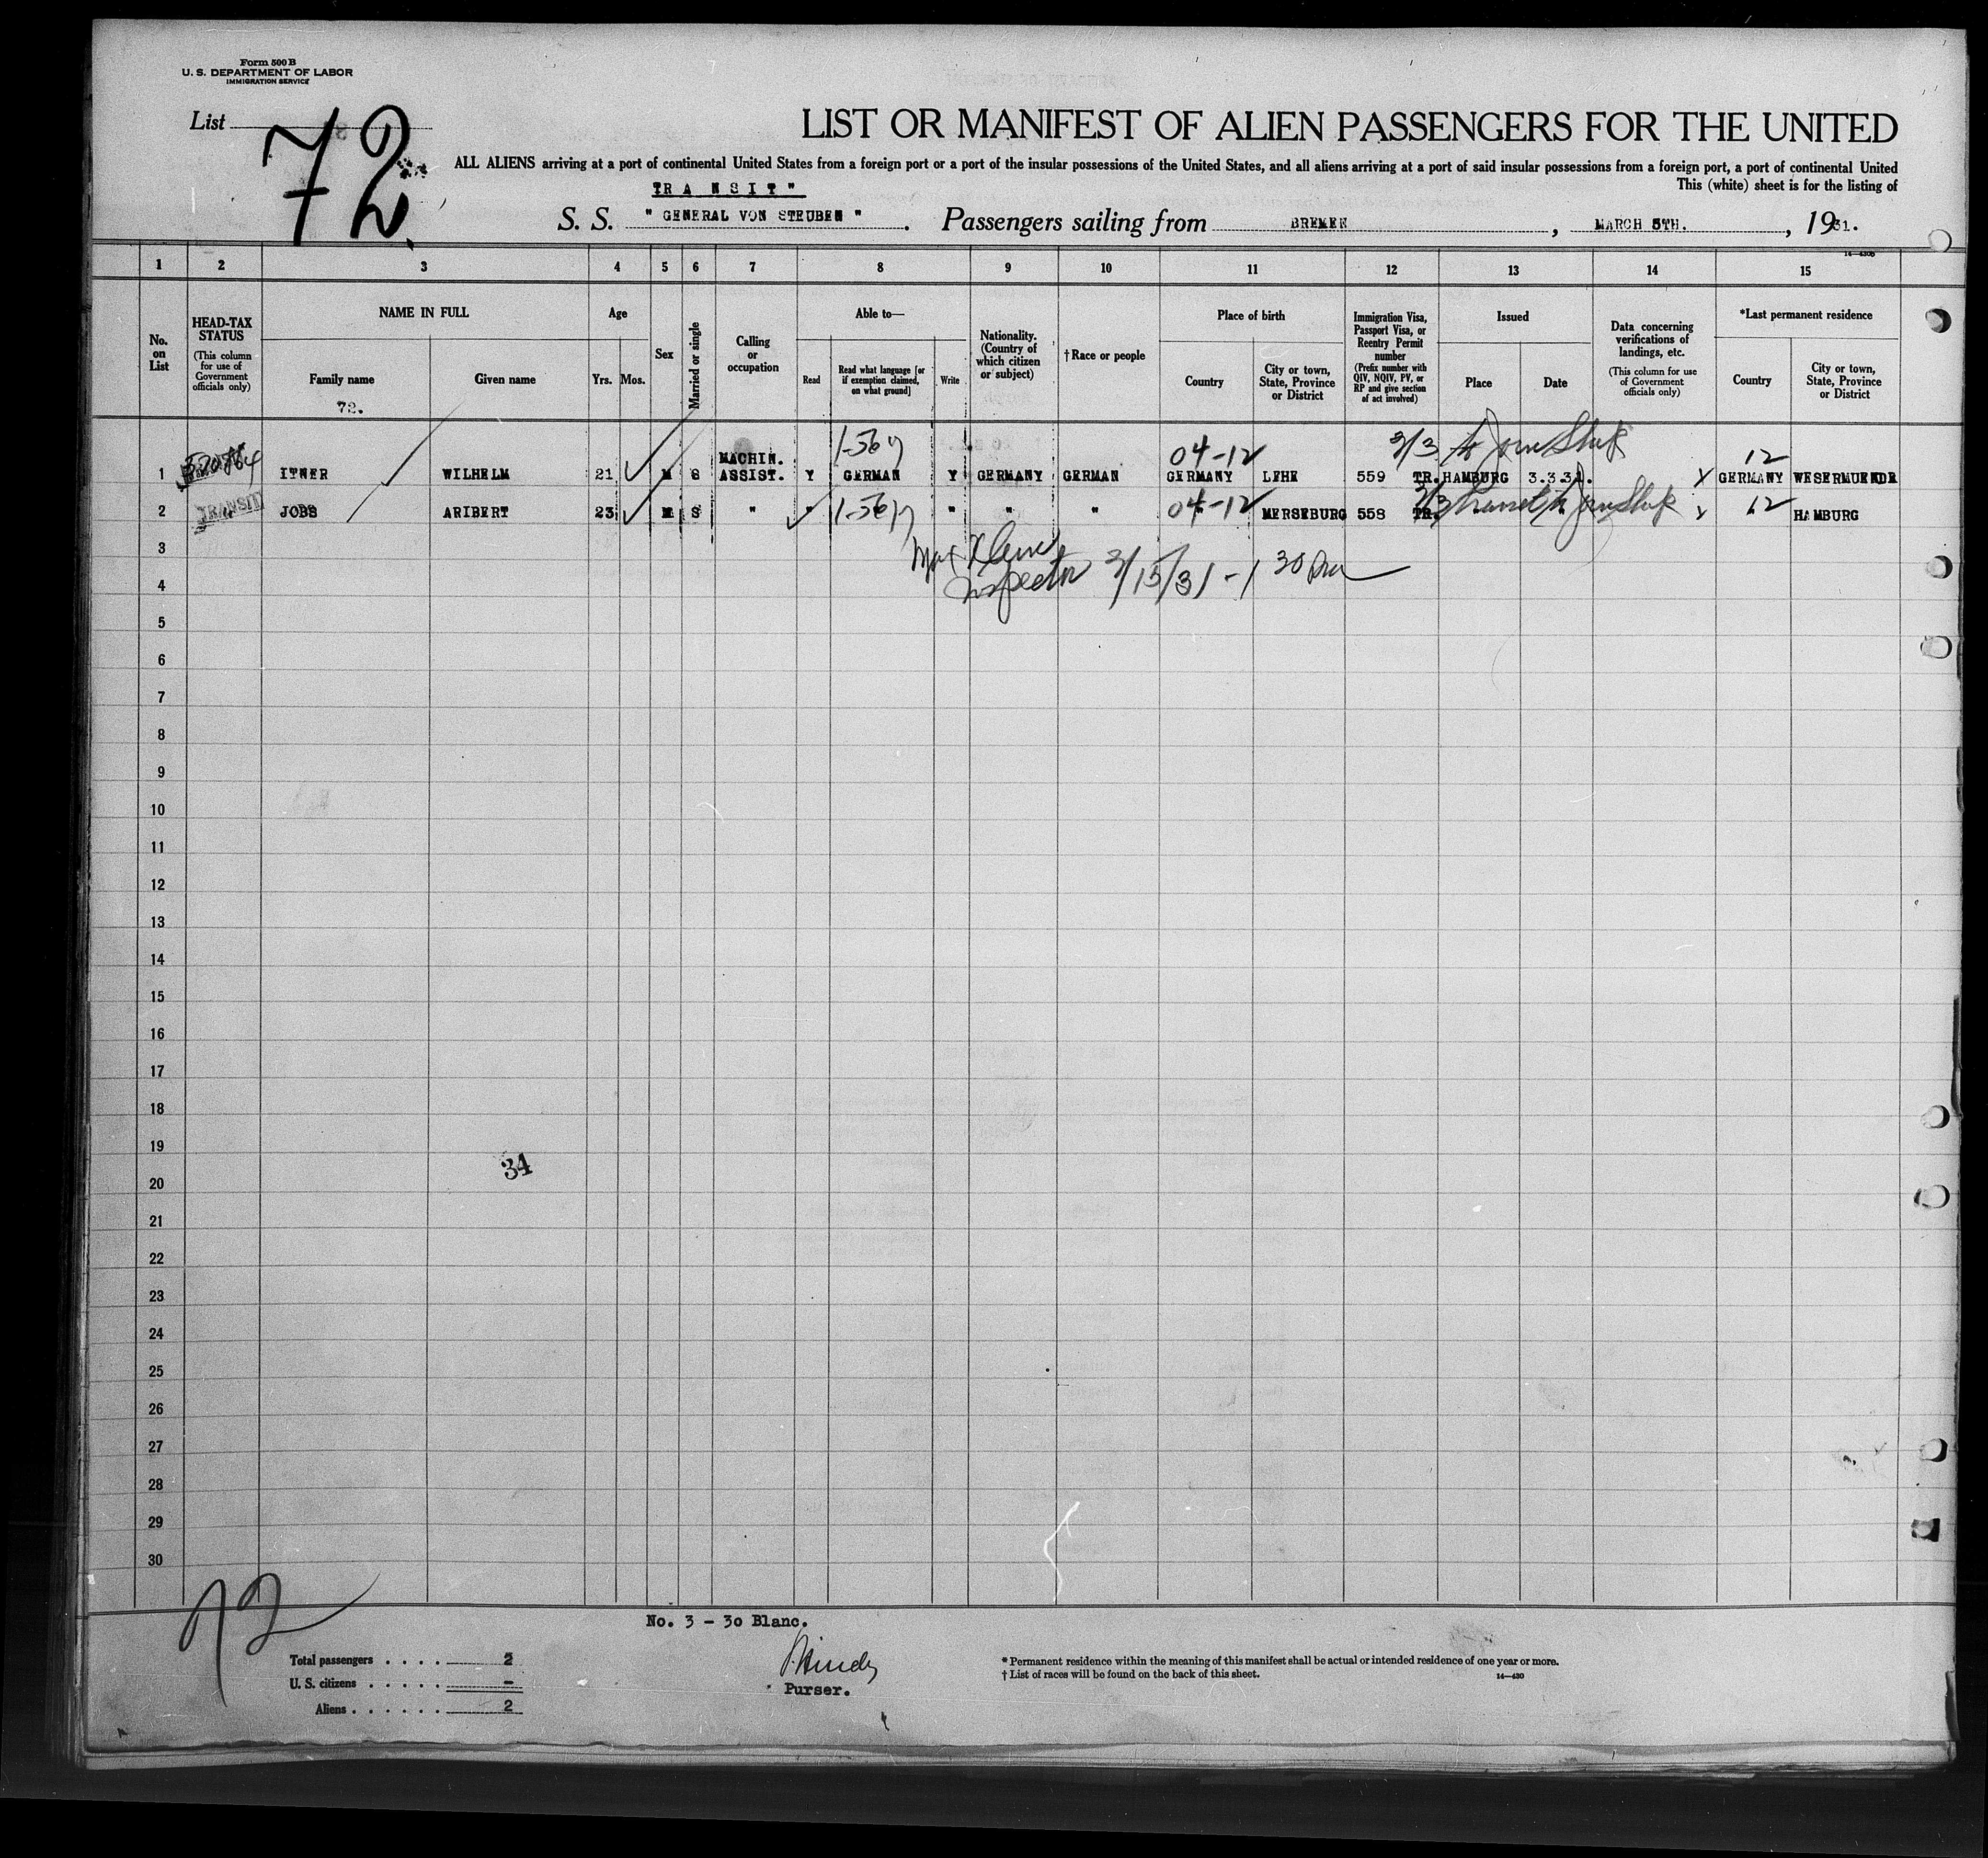 Form 500 B
U. S. DEPARTMENT OF LABOR
IMMIGRATION SERVICE
List 72
LIST OR MANIFEST OF ALIEN PASSENGERS FOR THE UNITED
ALL ALIENS arriving at a port of continental United States from a foreign port or a port of the insular possessions of the United States, and all aliens arriving at a port of said insular possessions from a foreign port, a port of continental United
This (white) sheet is for the listing of
TRANSIT"
S. S. " GENERAL VON STEUBEN ". Passengers sailing from BREMEN, MARCH 5TH., 1931.
14—430B
1 2 3 4 5 6 7 8 9 10 11 12 13 14 15
No. on List
HEAD-TAX STATUS
(This column for use of Government officials only)
NAME IN FULL
Family name
Given name
72.
Age
Yrs. Mos.
Sex
Married or single
Calling or occupation
Able to—
Read
Read what language [or if exemption claimed, on what ground]
Write
Nationality. (Country of which citizen or subject)
†Race or people
Place of birth
Country
City or town, State, Province or District
Immigration Visa, Passport Visa, or Reentry Permit number
(Prefix number with QIV, NQIV, PV, or RP and give section of act involved)
Issued
Place
Date
Data concerning verifications of landings, etc.
(This column for use of Government officials only)
*Last permanent residence
Country
City or town, State, Province or District
04-12 3/3 to join Ship 12
1 ITNER WILHELM 21 M S MACHIN. ASSIST. Y GERMAN Y GERMANY GERMAN GERMANY LEHE 559 TR. HAMBURG 3.3.31. GERMANY WESERMUENDE
2 TRANSIT JOBS ARIBERT 23 M S " " " " " 04-12 MERSEBURG 558 TR. " 12 HAMBURG
3
Inspector 3/15/31 - 1 30 pm
4
5
6
7
8
9
10
11
12
13
14
15
16
17
18
19
34
20
21
22
23
24
25
26
27
28
29
30
72
No. 3 - 30 Blanc.
Total passengers . . . . 2
U. S. citizens . . . . . -
Aliens . . . . . . 2
Purser.
* Permanent residence within the meaning of this manifest shall be actual or intended residence of one year or more.
† List of races will be found on the back of this sheet.
14—430